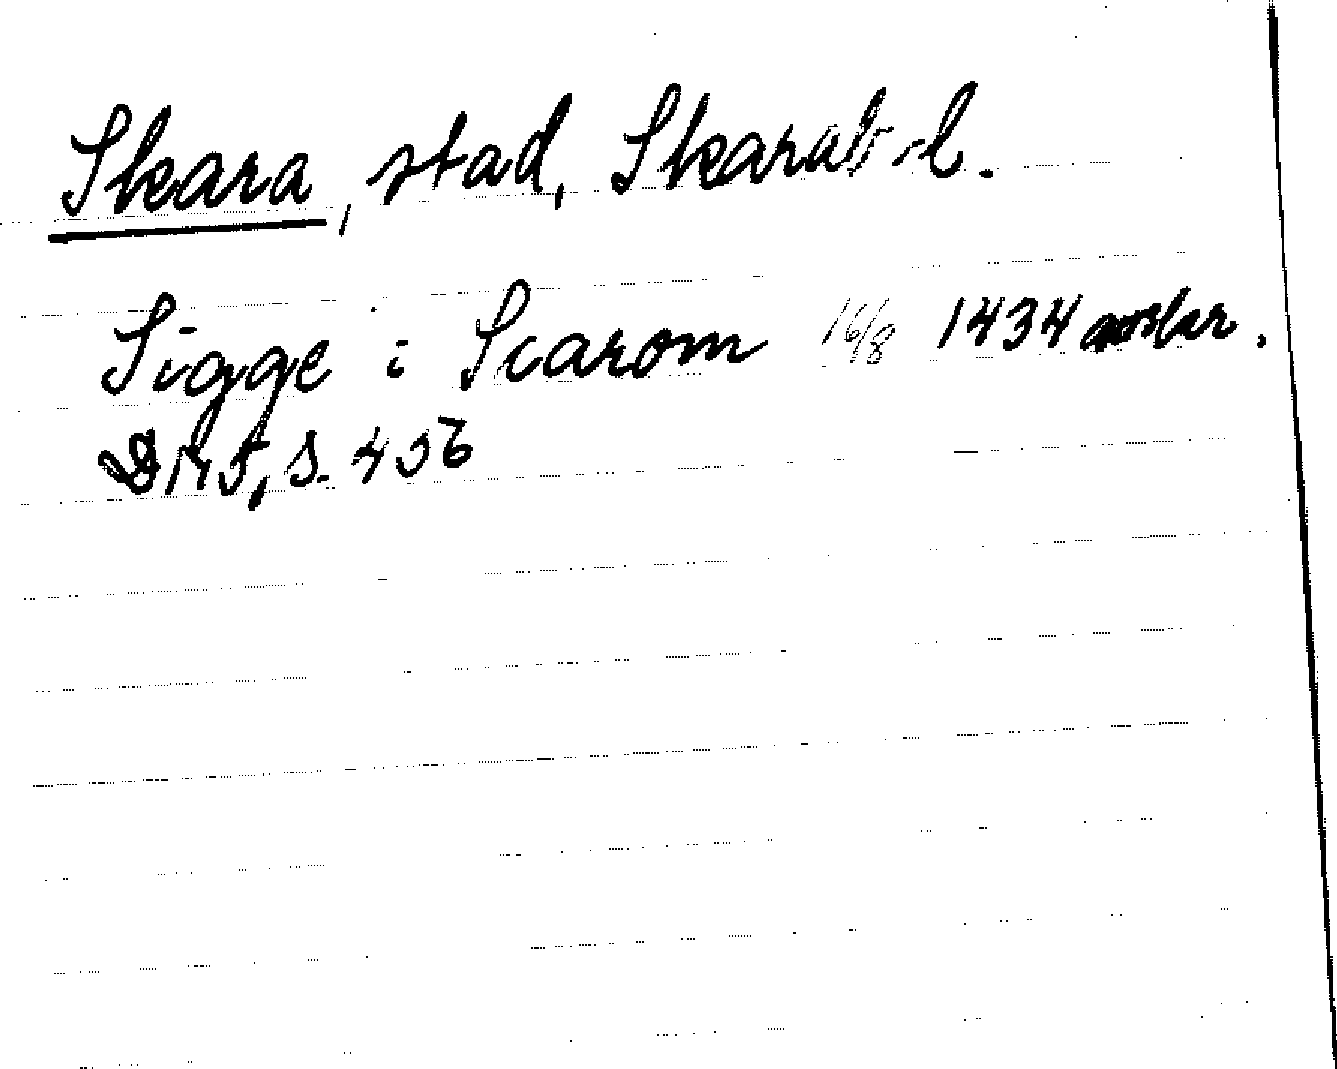 Skara, stad, Skarab-l.
Sigge i Scarom 16/8 1434 avskr.
DN5, s. 456